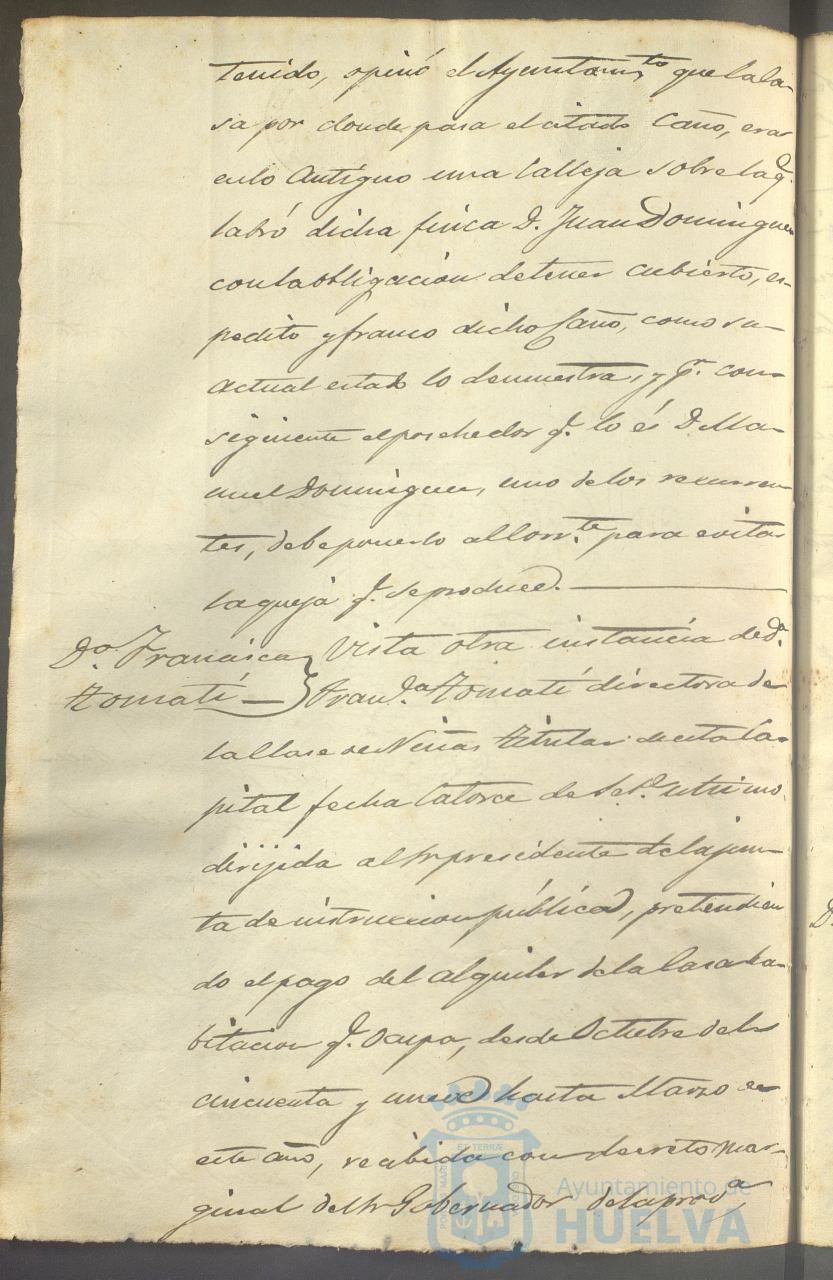 tenido, opinó el Ayuntam.to que la ca-
sa por donde pasa el citado Caño, era
en lo Antíguo una Calleja sobre la q.e
labró dicha finca D. Juan Dominguez
con la obligacion de tener cubierto, es-
pedito y franco dicho Caño, como su
actual estado lo demuestra, y p.r con-
siguiente el posehedor q.e lo és D. Ma-
nuel Dominguez, uno de los recurren-
tes, debe ponerlo al corr.te para evitar
la queja q.e se produce.
D.a Francisca
Tomatí
Vista otra instancia de D.a
Fran.ca Tomatí directora de
la clase de Niñas titular de esta Ca-
pital fecha catorce de Set.e último
dirijida al Sr presidente de la jun-
ta de instruccion pública, pretendien
do el pago del alquiler de la Casa ha-
bitacion q.e ocupa, desde Octubre del
cincuenta y nueve hasta Marzo de
este año, recibida con decreto mar-
ginal del Sr Gobernador de la prov.a
Ayuntamiento de
HUELVA